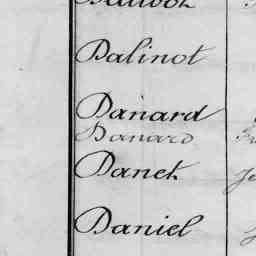 Dalinot
Danard
Danard
Danet
Daniel